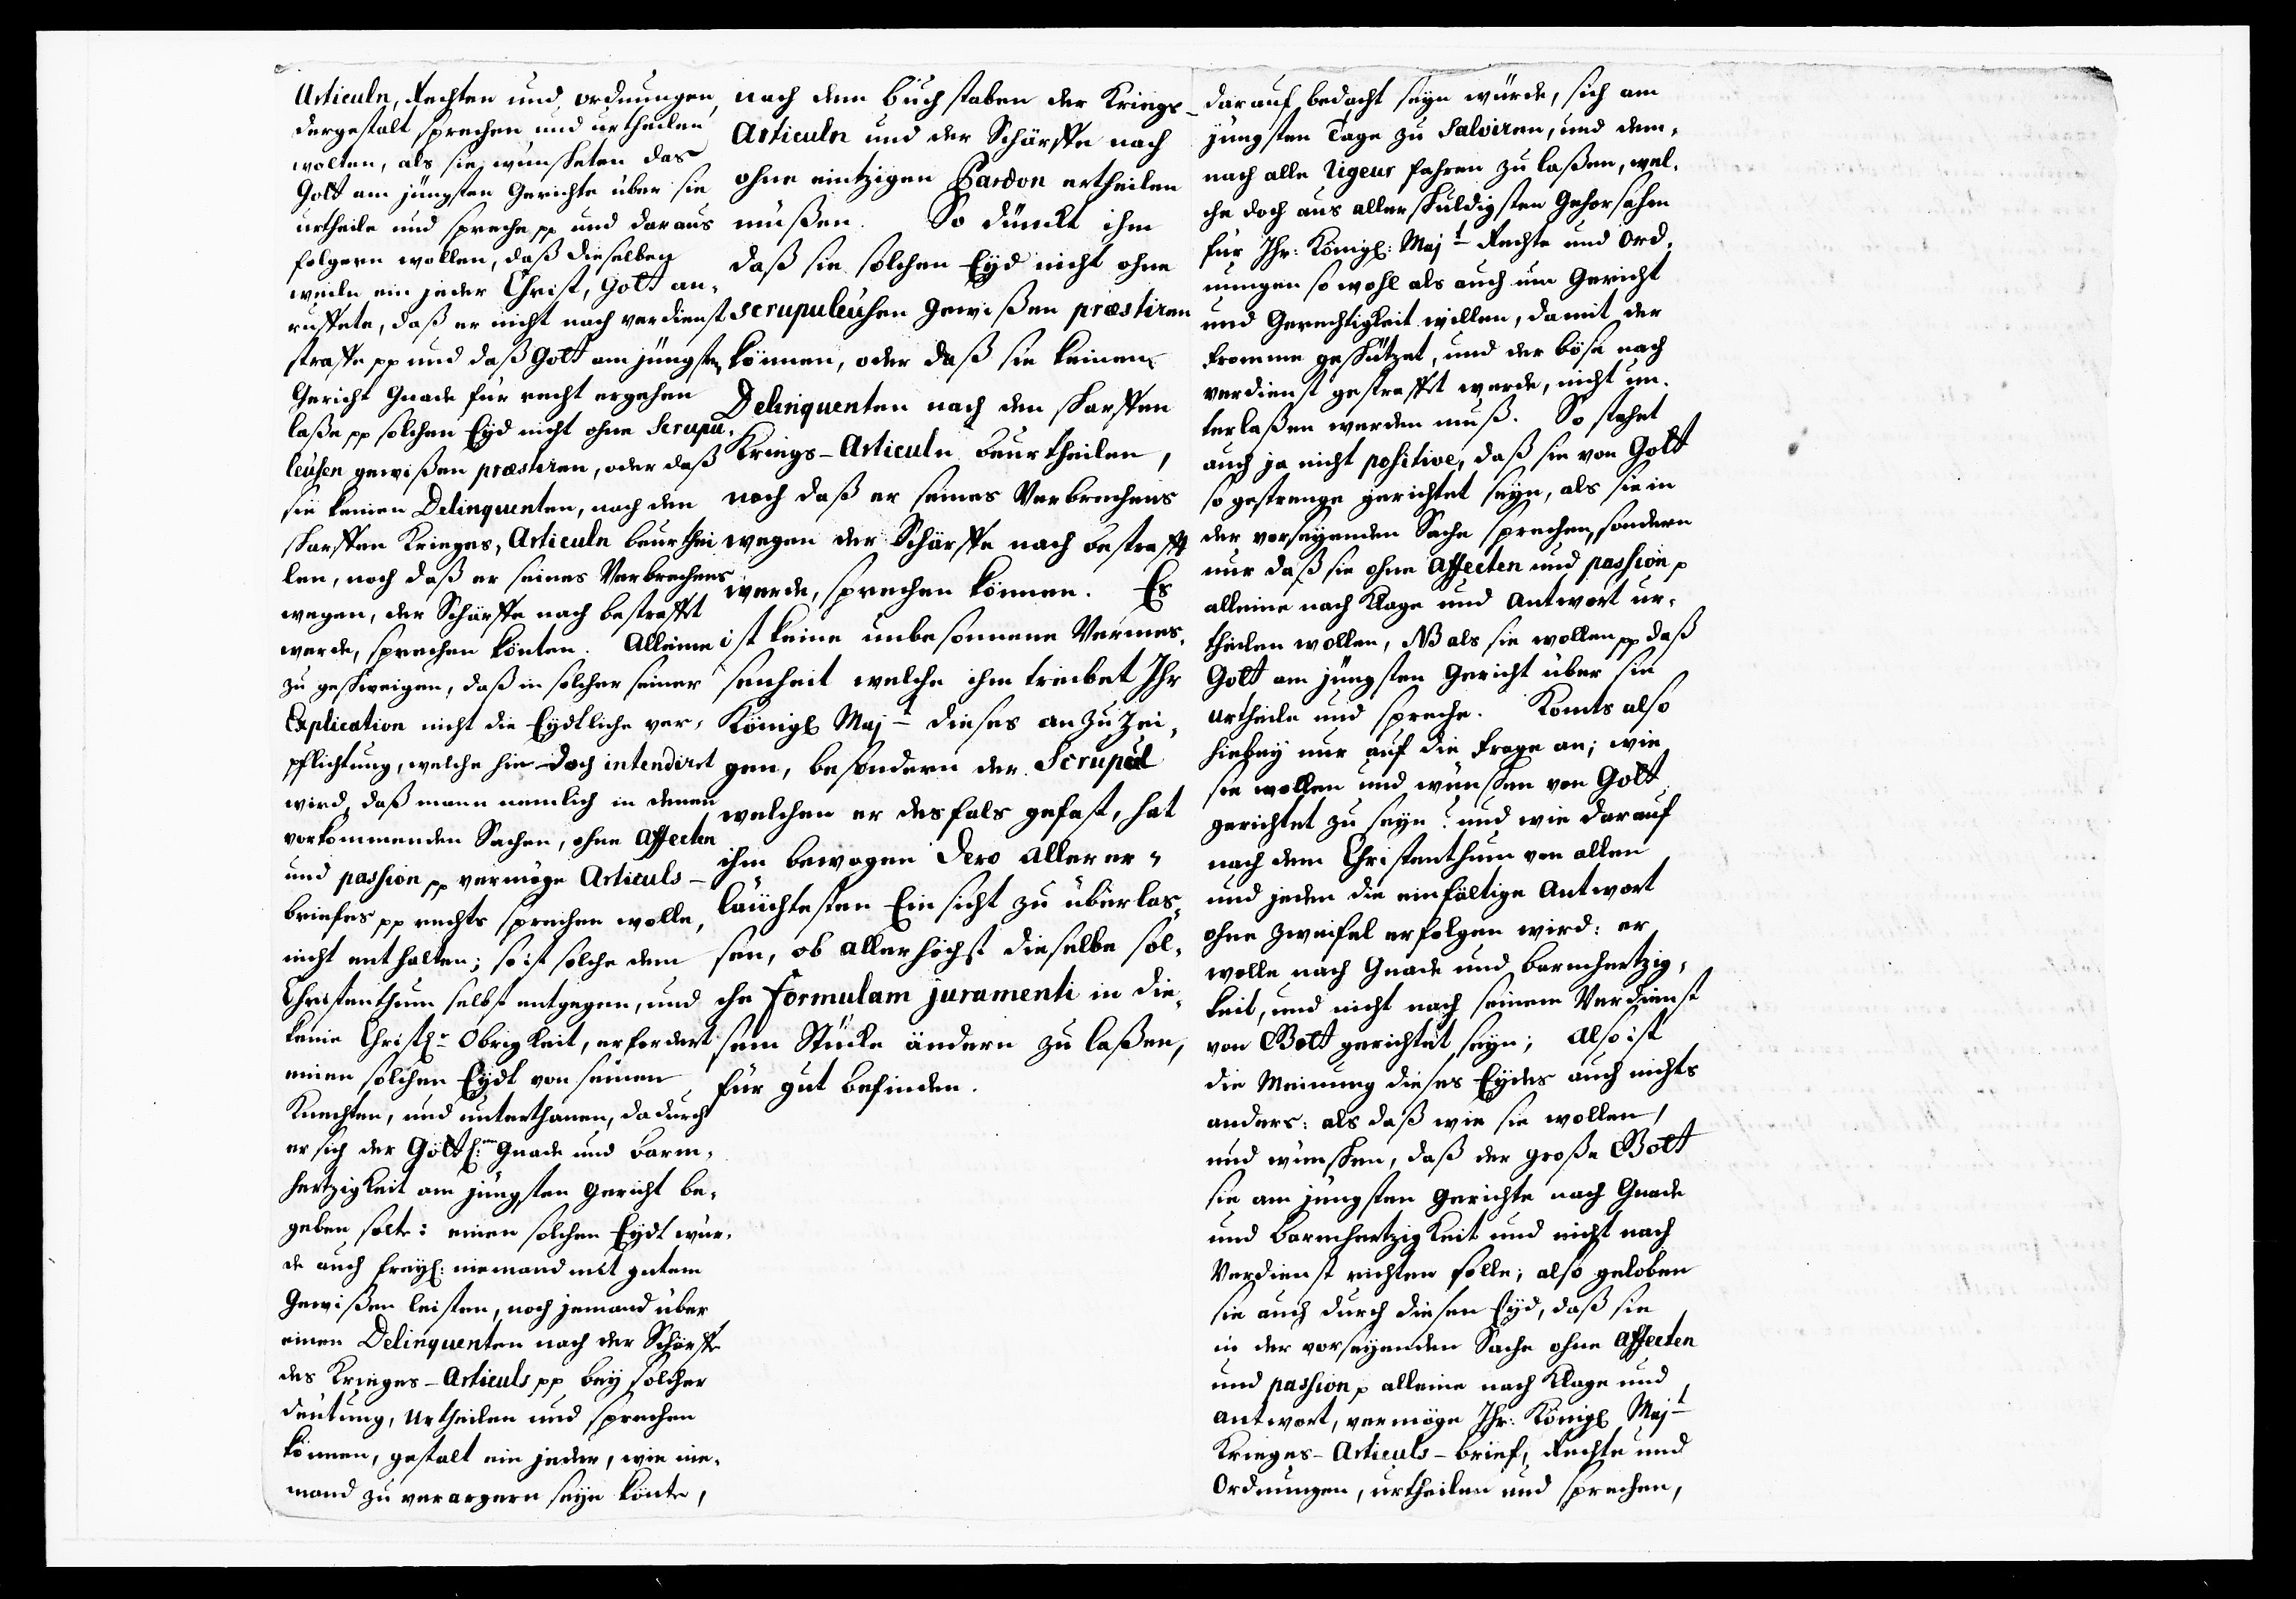 Articuln, Rechten und ordnungen,
dergestalt sprechen und urtheilen
wolten, als sie wünscheten das
Gott am jüngsten Gerichte über sie
urtheile und spreche pp und daraus
folgern wollen, daß dieselben
weiln ein jeder Christ, Gott an,
ruffete, daß er nicht nach verdienst
straffe pp und daß Gott am jüngsten
Gericht Gnade für recht ergehen
laße pp solchen Eyd nicht ohne Scrupu,
leusen gewißen præstiren, oder daß
sie keinen Delinquenten, nach den
scharffen Krieges, Articuln beurthei
len, noch daß er seines Verbrechens
wegen, der Schärffe nach bestraffet
werde, sprechen könten. Alleine
zu geschweigen, daß in solcher seiner
Explication nicht die Eydtliche ver,
pflichtung, welche hie doch intendirt
wird, daß mann nemlich in denen
vorkommenden Sachen, ohne Affecten
und passion pp vermöge Articuls-
briefes pp rechts sprechen wolle,
nicht enthalten; so ist solche dem
Christenthum selbst entgegen, und
keine Christl: Obrigkeit, erfordert
einen solchen Eydt von seinen
Knechten, und unterthanen, dadurch
er sich der Göttl: Gnade und barm,
hertzigkeit am jüngsten Gericht be,
geben solte: einen solchen Eydt wür,
de auch freyl: niemand mit gutem
Gewißen leisten, noch jemand über
einen Delinquenten nach der Schärffe
des Krieges-Articuls pp bey solcher
deütung, Urtheilen und sprechen
können, gestalt ein jeder, wie nie,
mand zu verargern seyn könte,
nach dem buchstaben der Kriegs-
Articuln und der Schärffe nach
ohne eintzigen Pardon ertheilen
müßen. So dünckt ihm
daß sie solchen Eyd nicht ohne
scrupuleusen Gewißen præstiren
können, oder daß sie keinen
Delinquenten nach den scharffen
Kriegs-Articuln beurtheilen,
noch daß er seines Verbrechens
wegen der Schärffe nach bestrafft
werde, sprechen können. Es
ist keine unbesonnene Vermes,
senheit welche ihm treibet Ihr
Königl Majt dieses anzuzei,
gen, besondern der Scrupul
welchen er desfals gefast, hat
ihm bewogen dero allerer,
läuchtesten Einsicht zu überlas,
sen, ob allerhöchst dieselbe sol,
che formulam juramenti in die,
sem Stücke ändern zu laßen,
für gut befinden.
darauf bedacht seyn würde, sich am
jüngsten Tage zu Salviren, und dem,
nach alle rigeur fahren zu laßen, wel,
che doch aus allerschuldigsten Gehorsahm
für Ihr: Königl: Majt Rechte und Ord,
nungen so wohl als auch um Gericht
und Gerechtigkeit willen, damit der
fromme geschützet, und der böse nach
verdienst gestraffet werde, nicht un,
terlaßen werden muß. So stehet
auch ja nicht positive, daß sie von Gott
so gestrenge gerichtet seyn, als sie in
der vorseyenden Sache sprechen, sondern
nur daß sie ohne Affecten und passion p
alleine nach Klage und Antwort ur,
theilen wollen, NB als sie wollen pp daß
Gott am jüngsten Gericht über sie
urtheile und spreche. Komts also
hiebey nur auf die frage an; wie
sie wollen und wünschen von Gott
gerichtet zu seyn? und wie darauf
nach dem Christenthum von allen
und jeden die einfältige Antwort
ohne zweifel erfolgen wird: er
wolle nach Gnade und barmhertzig,
keit, und nicht nach seinem Verdienst
von Gott gerichtet seyn; Also ist
die Meinung dieses Eydes auch nichts
anders: als daß wie sie wollen,
und wünschen, daß der große Gott
sie am jüngsten Gerichte nach Gnade
und Barmhertzigkeit und nicht nach
Verdienst richten solle; also geloben
sie auch durch diesen Eyd, daß sie
in der vorseyenden Sache ohne Affecten
und passion p alleine nach Klage und
Antwort, vermöge Ihr: Königl Majt
Krieges-Articuls-brief, Rechte und
Ordnungen, urtheilen und sprechen,